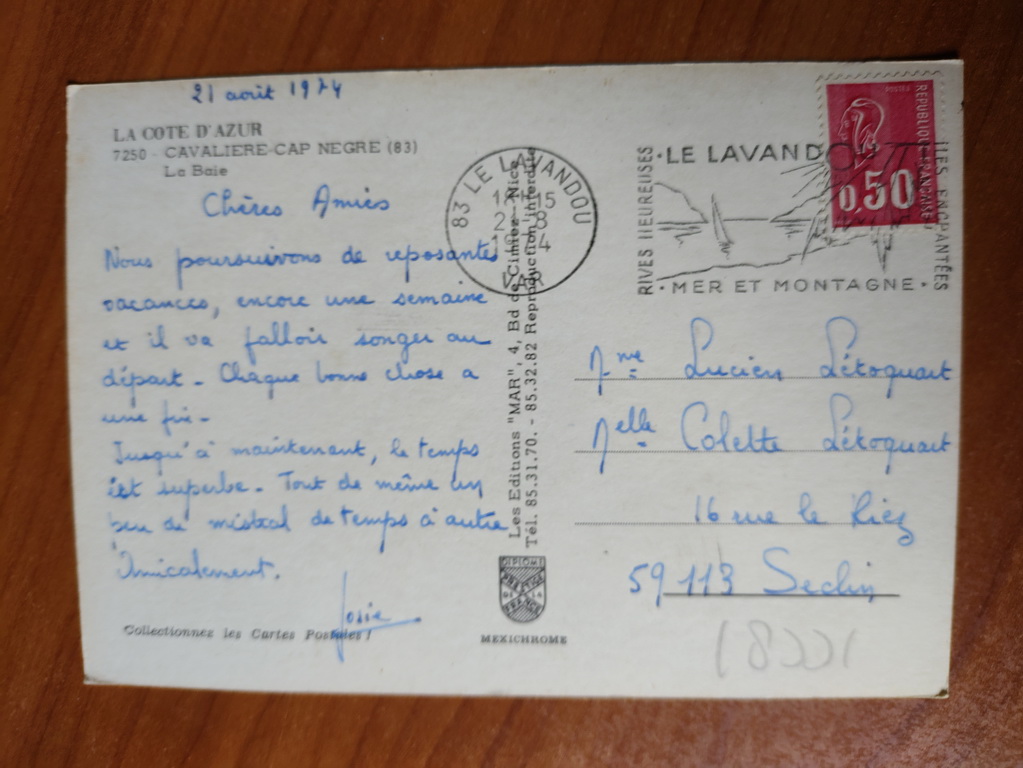 21 août 1974
LA COTE D'AZUR
7250 - CAVALIERE-CAP NEGRE (83)
La Baie
Chères Amies
Nous poursuivons de reposantes
vacances, encore une semaine
et il va falloir songer au
départ - Chaque bonne chose a
une fin -
Jusqu'à maintenant, le temps
est superbe - Tout de même un
peu de mistral de temps à autre
Amicalement.
Josie
Collectionnez les Cartes Postales !
83 LE LAVANDOU
VAR
Les Editions "MAR", 4, Bd de Cimiez - Nice
Tél. 85.31.70. - 85.32.82 Reproduction interdite
DIPLOME
PRESTIGE
FRANCE
MEXICHROME
RIVES HEUREUSES
· LE LAVANDOU
ILES ENCHANTÉES
· MER ET MONTAGNE ·
REPUBLIQUE FRANCAISE
0,50
Mme Lucien Létoquart
Melle Colette Létoquart
16 rue le Riez
59113 Seclin